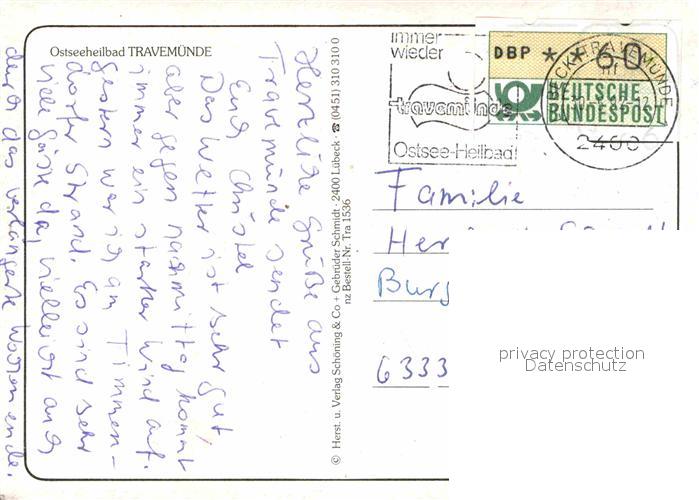 Ostseeheilbad TRAVEMÜNDE
Herzliche Grüße aus
Travemünde sendet
Euch Christel
Das Wetter ist sehr gut,
aber gegen nachmittag kommt
immer ein starker Wind auf.
Gestern war ich am Timmen-
dorfer Strand. Es sind sehr
viele Gäste da, vielleicht auch
durch das verlängerte Wochenende.
© Herst. u. Verlag Schöning & Co + Gebrüder Schmidt · 2400 Lübeck · ☎ (0451) 310 310 0
nz Bestell-Nr. Tra 1536
immer
wieder
travemünde
Ostsee-Heilbad
DBP * * 60
DEUTSCHE
BUNDESPOST
TRAVEMÜNDE
2400
Familie
Her
Burg
6333
privacy protection
Datenschutz